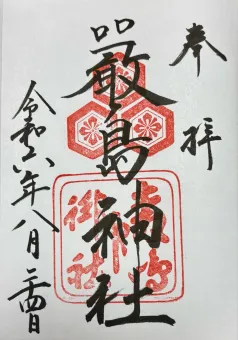 奉拝
嚴島神社
令和六年八月二四日